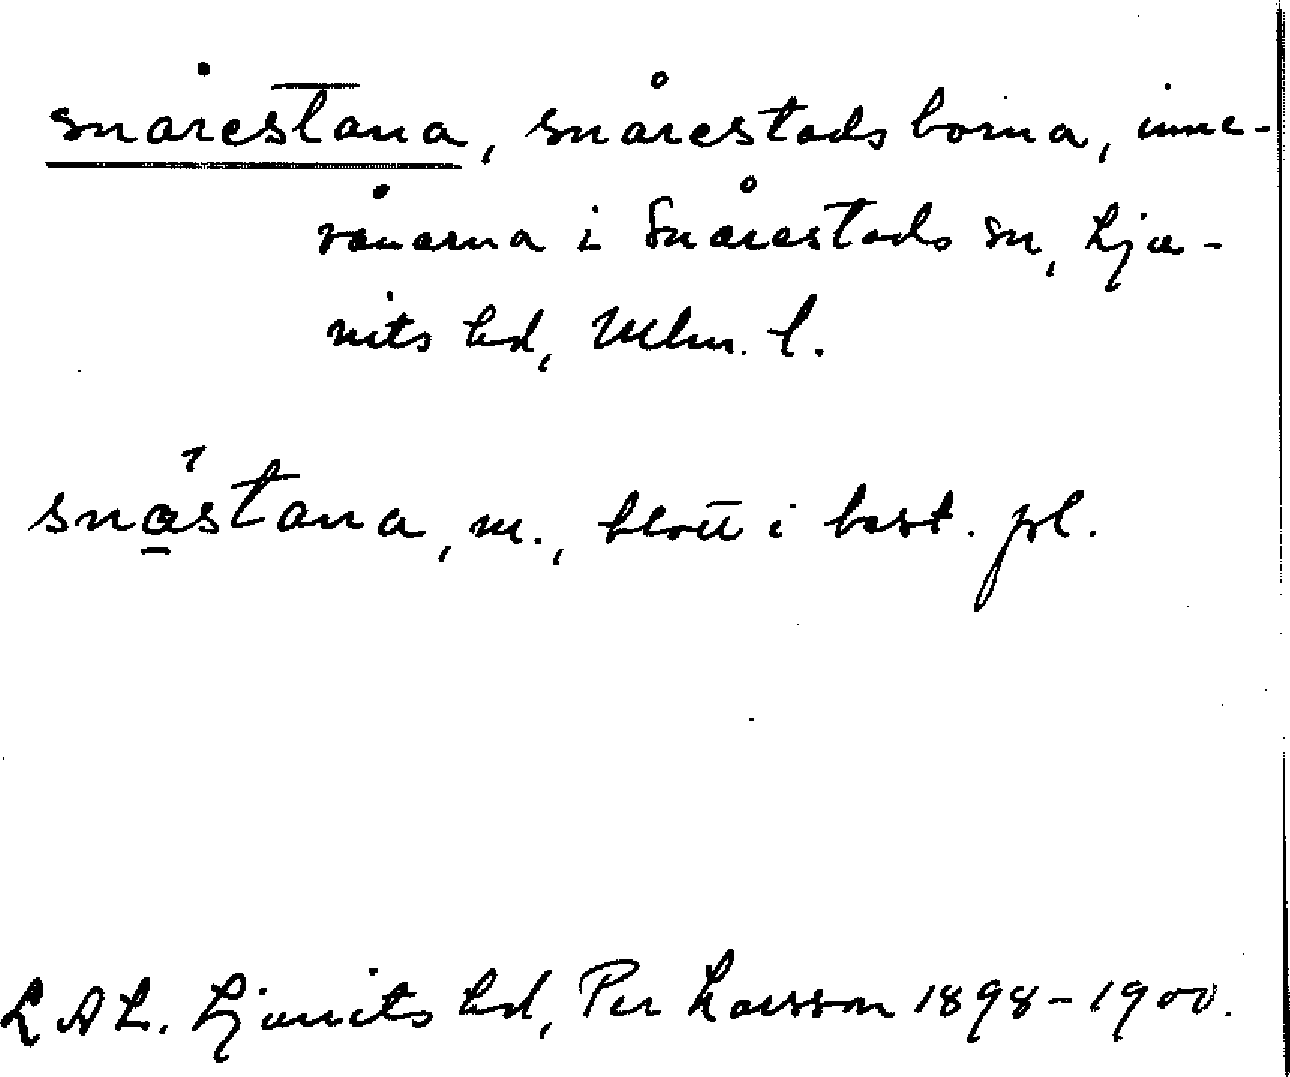 snårestana, snårestadsborna, inne-
vånarna i Snårestads sn, Lju-
nits hd, Mlm. l.
snåstana, m., blott i best. pl.
LAL. Ljunits hd, Per Larsson 1898-1900.